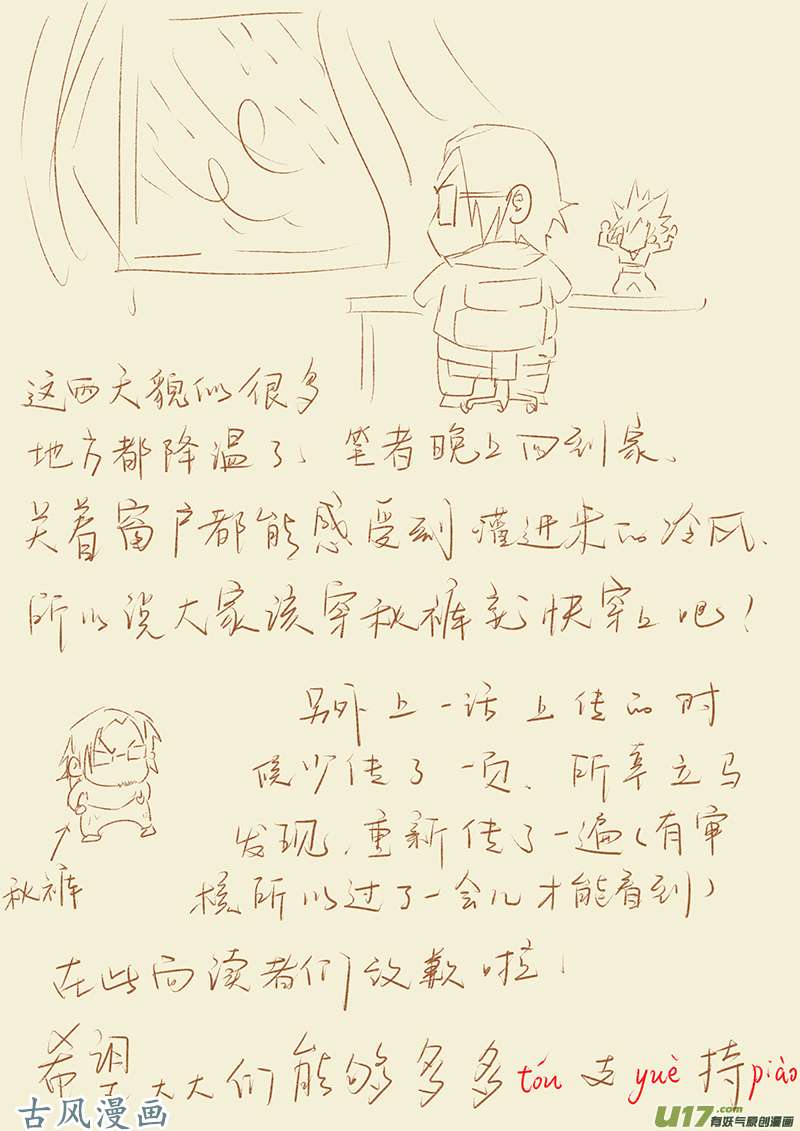 这两天貌似很多
地方都降温了、笔者晚上回到家、
关着窗户都能感受到灌进来的冷风、
所以说大家该穿秋裤就快穿上吧!
另外上一话上传的时
候少传了一页、所幸立马
发现、重新传了一遍(有审
核所以过了一会儿才能看到)
秋裤
在此向读者们致歉啦!
希望大大们能够多多tóu支yuè持piào
古风漫画
U17.com
有妖气原创漫画